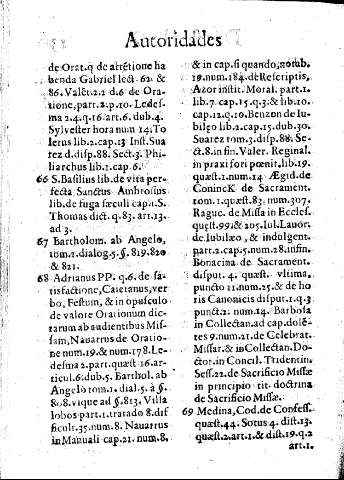 Autoridades
de Orat.q de attẽtione ha
benda Gabriel lect. 62. &
86. Valẽt.2.2 d.6 de Ora
tione, part.2.p.10. Ledes-
ma 2.4.q.16 art.6. dub.4.
Sylvester hora num 14. To
lerus lib.2.cap.13 Inst. Sua
rez d.disp.88. Sect.3. Phi-
liarchus lib.1.cap.6.
66 S. Basilius lib. de vita per-
fecta Sanctus Ambrosius
lib. de fuga sæculi cap.1. S.
Thomas dict. q.83. art.13.
ad 3.
67 Bartholom. ab Angelo,
tom.1.dialog.5.§.819.820
& 821.
68 Adrianus PP. q.6. de sa-
tisfactione, Caietanus, ver-
bo, Festum, & in opusculo
de valore Orationum dic-
tarum ab audientibus Mis-
sam, Navarrus de Oratio-
ne num.19. & num.178. Le-
desma 2. part. quæst. 16. ar-
ticul.6.dub.5. Barthol. ab
Angelo tom.1. dial.5. à §.
808. vique ad §.813. Villa
lobos part.1. tratado 8. dif
ficult.35.num.8. Navarrus
in Manuali cap.21. num.8,
& in cap. si quando, notab.
19. num.184. de Rescriptis,
Azor instit. Moral. part.1.
lib.7. cap.15. q.3. & lib.10.
cap.12. q.10. Benzon de Iu-
bileo lib.2.cap.15. dub.30.
Suarez tom.3. disp.88. Se-
ct.8. in fin. Valer. Reginal.
in praxi fori pœnit. lib.19.
quæst.1.num.14 Ægid. de
Coninck de Sacrament.
tom.1. quæst.83. num.307.
Rague. de Missa in Eccles.
quest.99. & 205. Iul. Lavor.
de Iubilæo, & indulgent.
part.2.cap.5.num.28. infin.
Bonacina de Sacrament.
disput.4. quæst. vltima,
puncto 11. num.25. & de ho
ris Canonicis disput.1. q.3.
punct.2. num.14. Barbosa
in Collectan. ad cap. dolẽ-
tes 9. num.21. de Celebrat.
Missar. & in Collectan. Do-
ctor. in Concil. Tridentin.
Sess.22. de Sacrificio Missæ
in principio tit. doctrina
de Sacrificio Missæ.
69 Medina, Cod. de Confess.
quæst.44. Sotus 4. dist.13.
quæst.2. art.1. & dist.19. q.2
art.1.